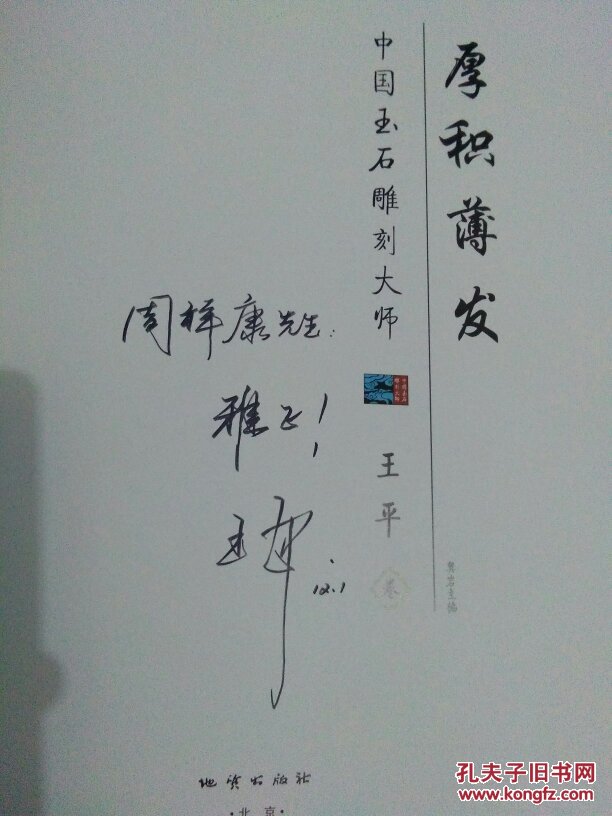 厚积薄发
中国玉石雕刻大师
中国玉石
雕刻大师
王平
卷
周祥康先生:
雅正!
王平
12.1
地质出版社
·北京·
孔夫子旧书网
www.kongfz.com